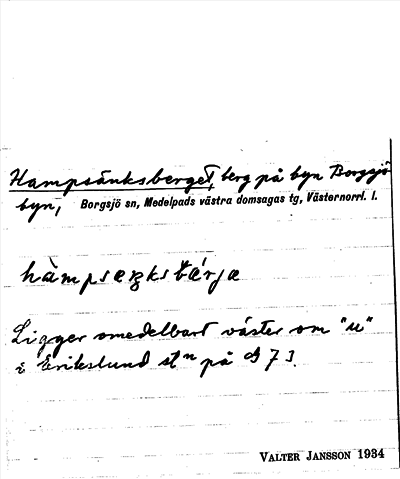 Hampsänksberget, berg på byn Borgsjö
byn, Borgsjö sn, Medelpads västra domsagas tg, Västernorrl. l.
Ligger omedelbart väster om "u"
i Erikslund stn på 73.
VALTER JANSSON 1934